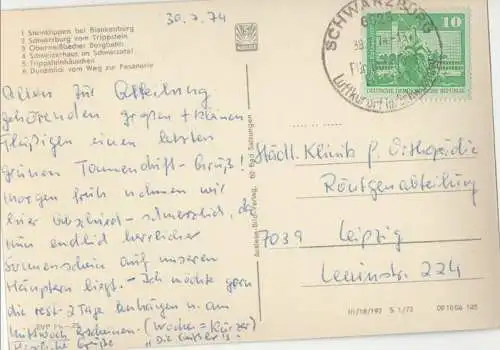 30.7.74
1 Steinklippen bei Blankenburg
2 Schwarzburg vom Trippstein
3 Oberweißbacher Bergbahn
4 Schweizerhaus im Schwarzatal
5 Trippsteinhäuschen
6 Durchblick vom Weg zur Fasanerie
Allen zur Abteilung
gehörenden großen + kleinen
Fleißigen einen letzten
grünen Tannenduft-Gruß!
Morgen früh nehmen wir
hier Abschied - schmerzlich, da
nun endlich herrlicher
Sonnenschein auf unseren
Häuptern liegt. - Ich möchte gern
die rest. 2 Tage anhängen u. am
Mittwoch erscheinen. (Woche = Kürzer)
Herzliche Grüße
"Die
Auslese-Bild-Verlag, 60 Bad Salzungen
SCHWARZBURG
6823
Luftkurort im
10
DEUTSCHE DEMOKRATISCHE REPUBLIK
Städt. Klinik f. Orthopädie
Röntgenabteilung
7039 Leipzig
Leninstr. 224
III/18/193 S 1/73